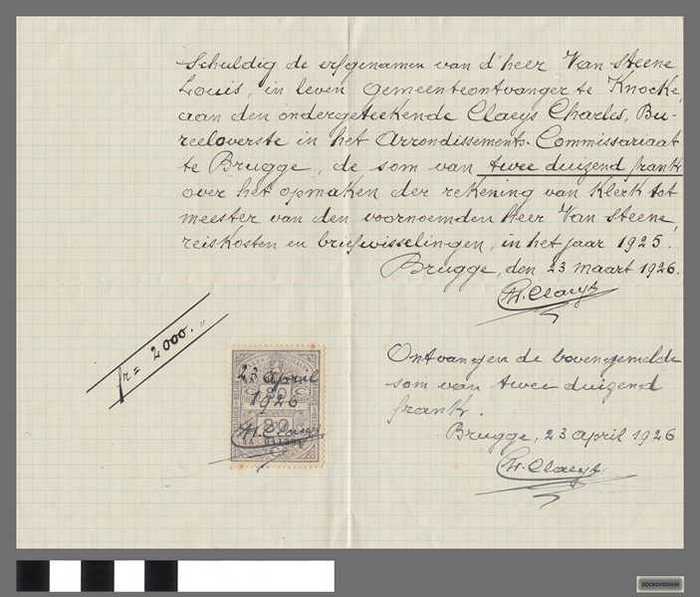 Schuldig de erfgenamen van d'heer Van Steene
Louis, in leven gemeenteontvanger te Knocke,
aan den ondergeteekende Claeys Charles, Bu-
reeloverste in het Arrondissements-Commissariaat
te Brugge, de som van twee duizend frank
over het opmaken der rekening van klerk tot
meester van den voornoemden Heer Van Steene,
reiskosten en briefwisselingen, in het jaar 1925.
Brugge, den 23 maart 1926.
Ch. Claeys
fr = 2000.,,
23 april
1926
20
Ch. Claeys
Ontvangen de bovengemelde
som van twee duizend
frank.
Brugge, 23 april 1926
Ch. Claeys